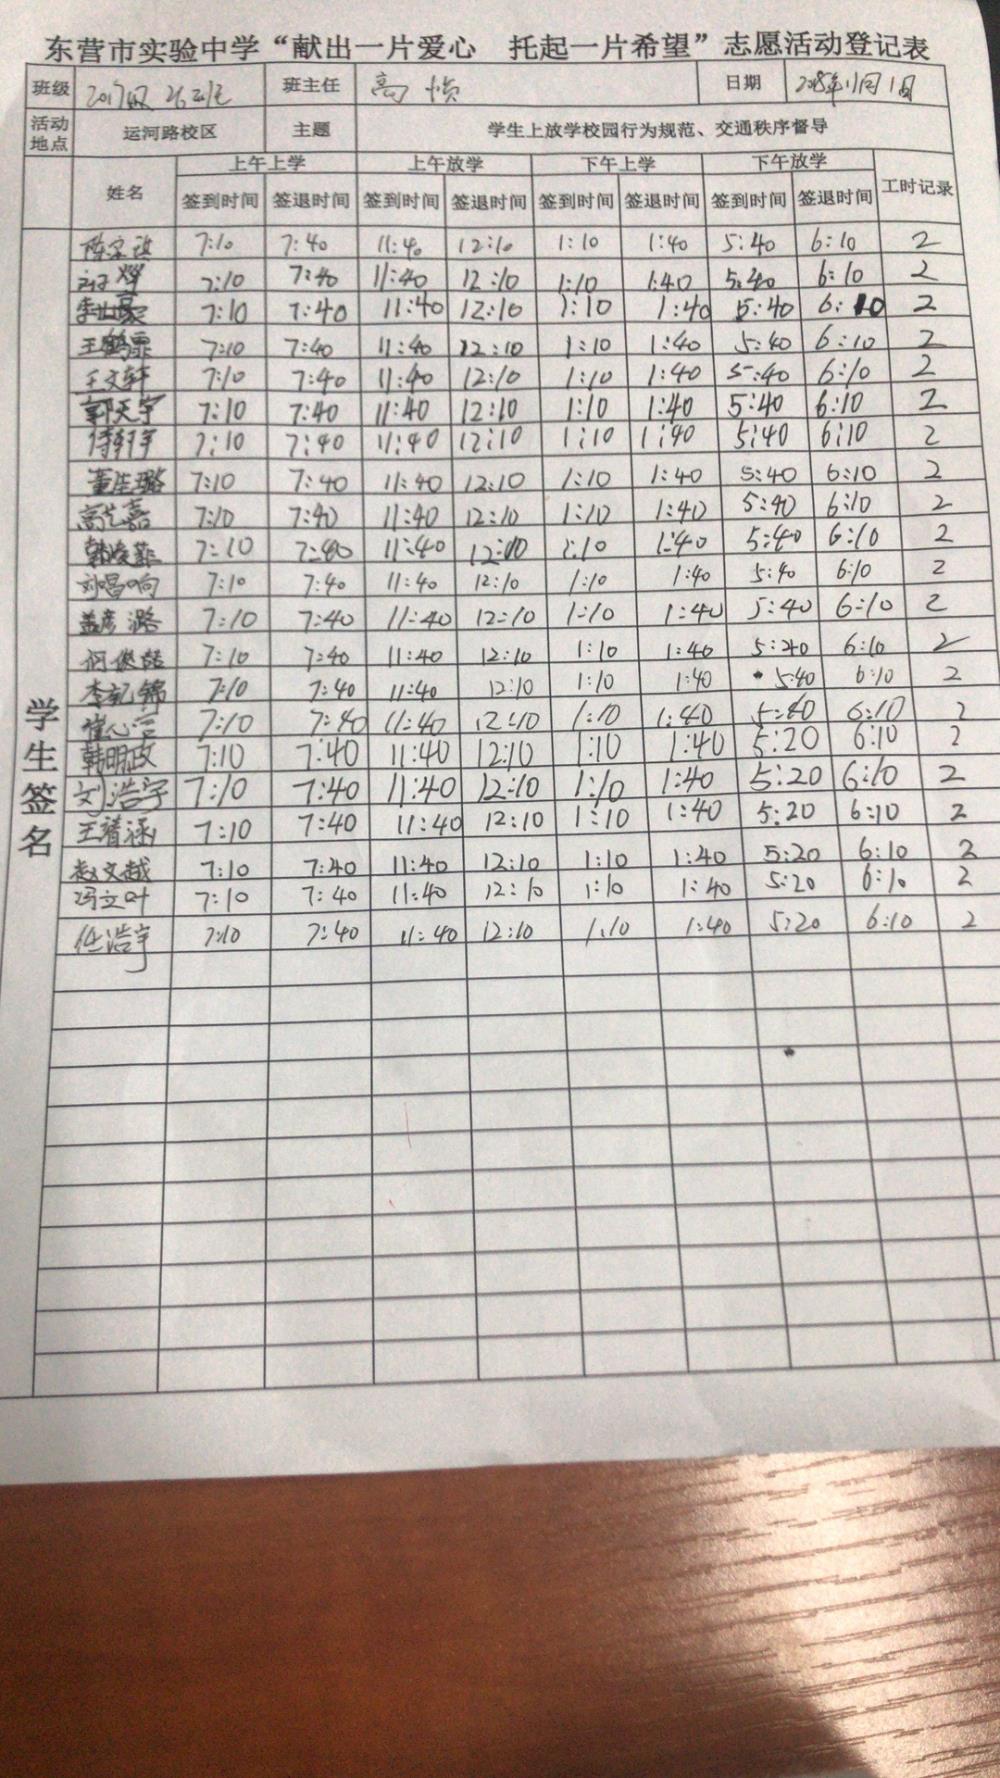 东营市实验中学“献出一片爱心 托起一片希望”志愿活动登记表
班级 2017级 26班 班主任 高 日期 2018年11月1日
活动地点 运河路校区 主题 学生上放学校园行为规范、交通秩序督导
姓名 上午上学 上午放学 下午上学 下午放学 工时记录
签到时间 签退时间 签到时间 签退时间 签到时间 签退时间 签到时间 签退时间
学生签名
7:10 7:40 11:40 12:10 1:10 1:40 5:40 6:10 2
7:10 7:40 11:40 12:10 1:10 1:40 5:40 6:10 2
7:10 7:40 11:40 12:10 1:10 1:40 5:40 6:10 2
王鹤霏 7:10 7:40 11:40 12:10 1:10 1:40 5:40 6:10 2
王文轩 7:10 7:40 11:40 12:10 1:10 1:40 5:40 6:10 2
郭天宇 7:10 7:40 11:40 12:10 1:10 1:40 5:40 6:10 2
7:10 7:40 11:40 12:10 1:10 1:40 5:40 6:10 2
7:10 7:40 11:40 12:10 1:10 1:40 5:40 6:10 2
7:10 7:40 11:40 12:10 1:10 1:40 5:40 6:10 2
7:10 7:40 11:40 12:10 1:10 1:40 5:40 6:10 2
刘唱响 7:10 7:40 11:40 12:10 1:10 1:40 5:40 6:10 2
盖彦潞 7:10 7:40 11:40 12:10 1:10 1:40 5:40 6:10 2
7:10 7:40 11:40 12:10 1:10 1:40 5:40 6:10 2
7:10 7:40 11:40 12:10 1:10 1:40 5:40 6:10 2
7:10 7:40 11:40 12:10 1:10 1:40 5:40 6:10 2
韩明政 7:10 7:40 11:40 12:10 1:10 1:40 5:20 6:10 2
刘浩宇 7:10 7:40 11:40 12:10 1:10 1:40 5:20 6:10 2
王靖涵 7:10 7:40 11:40 12:10 1:10 1:40 5:20 6:10 2
赵文越 7:10 7:40 11:40 12:10 1:10 1:40 5:20 6:10 2
冯文叶 7:10 7:40 11:40 12:10 1:10 1:40 5:20 6:10 2
任浩宇 7:10 7:40 11:40 12:10 1:10 1:40 5:20 6:10 2